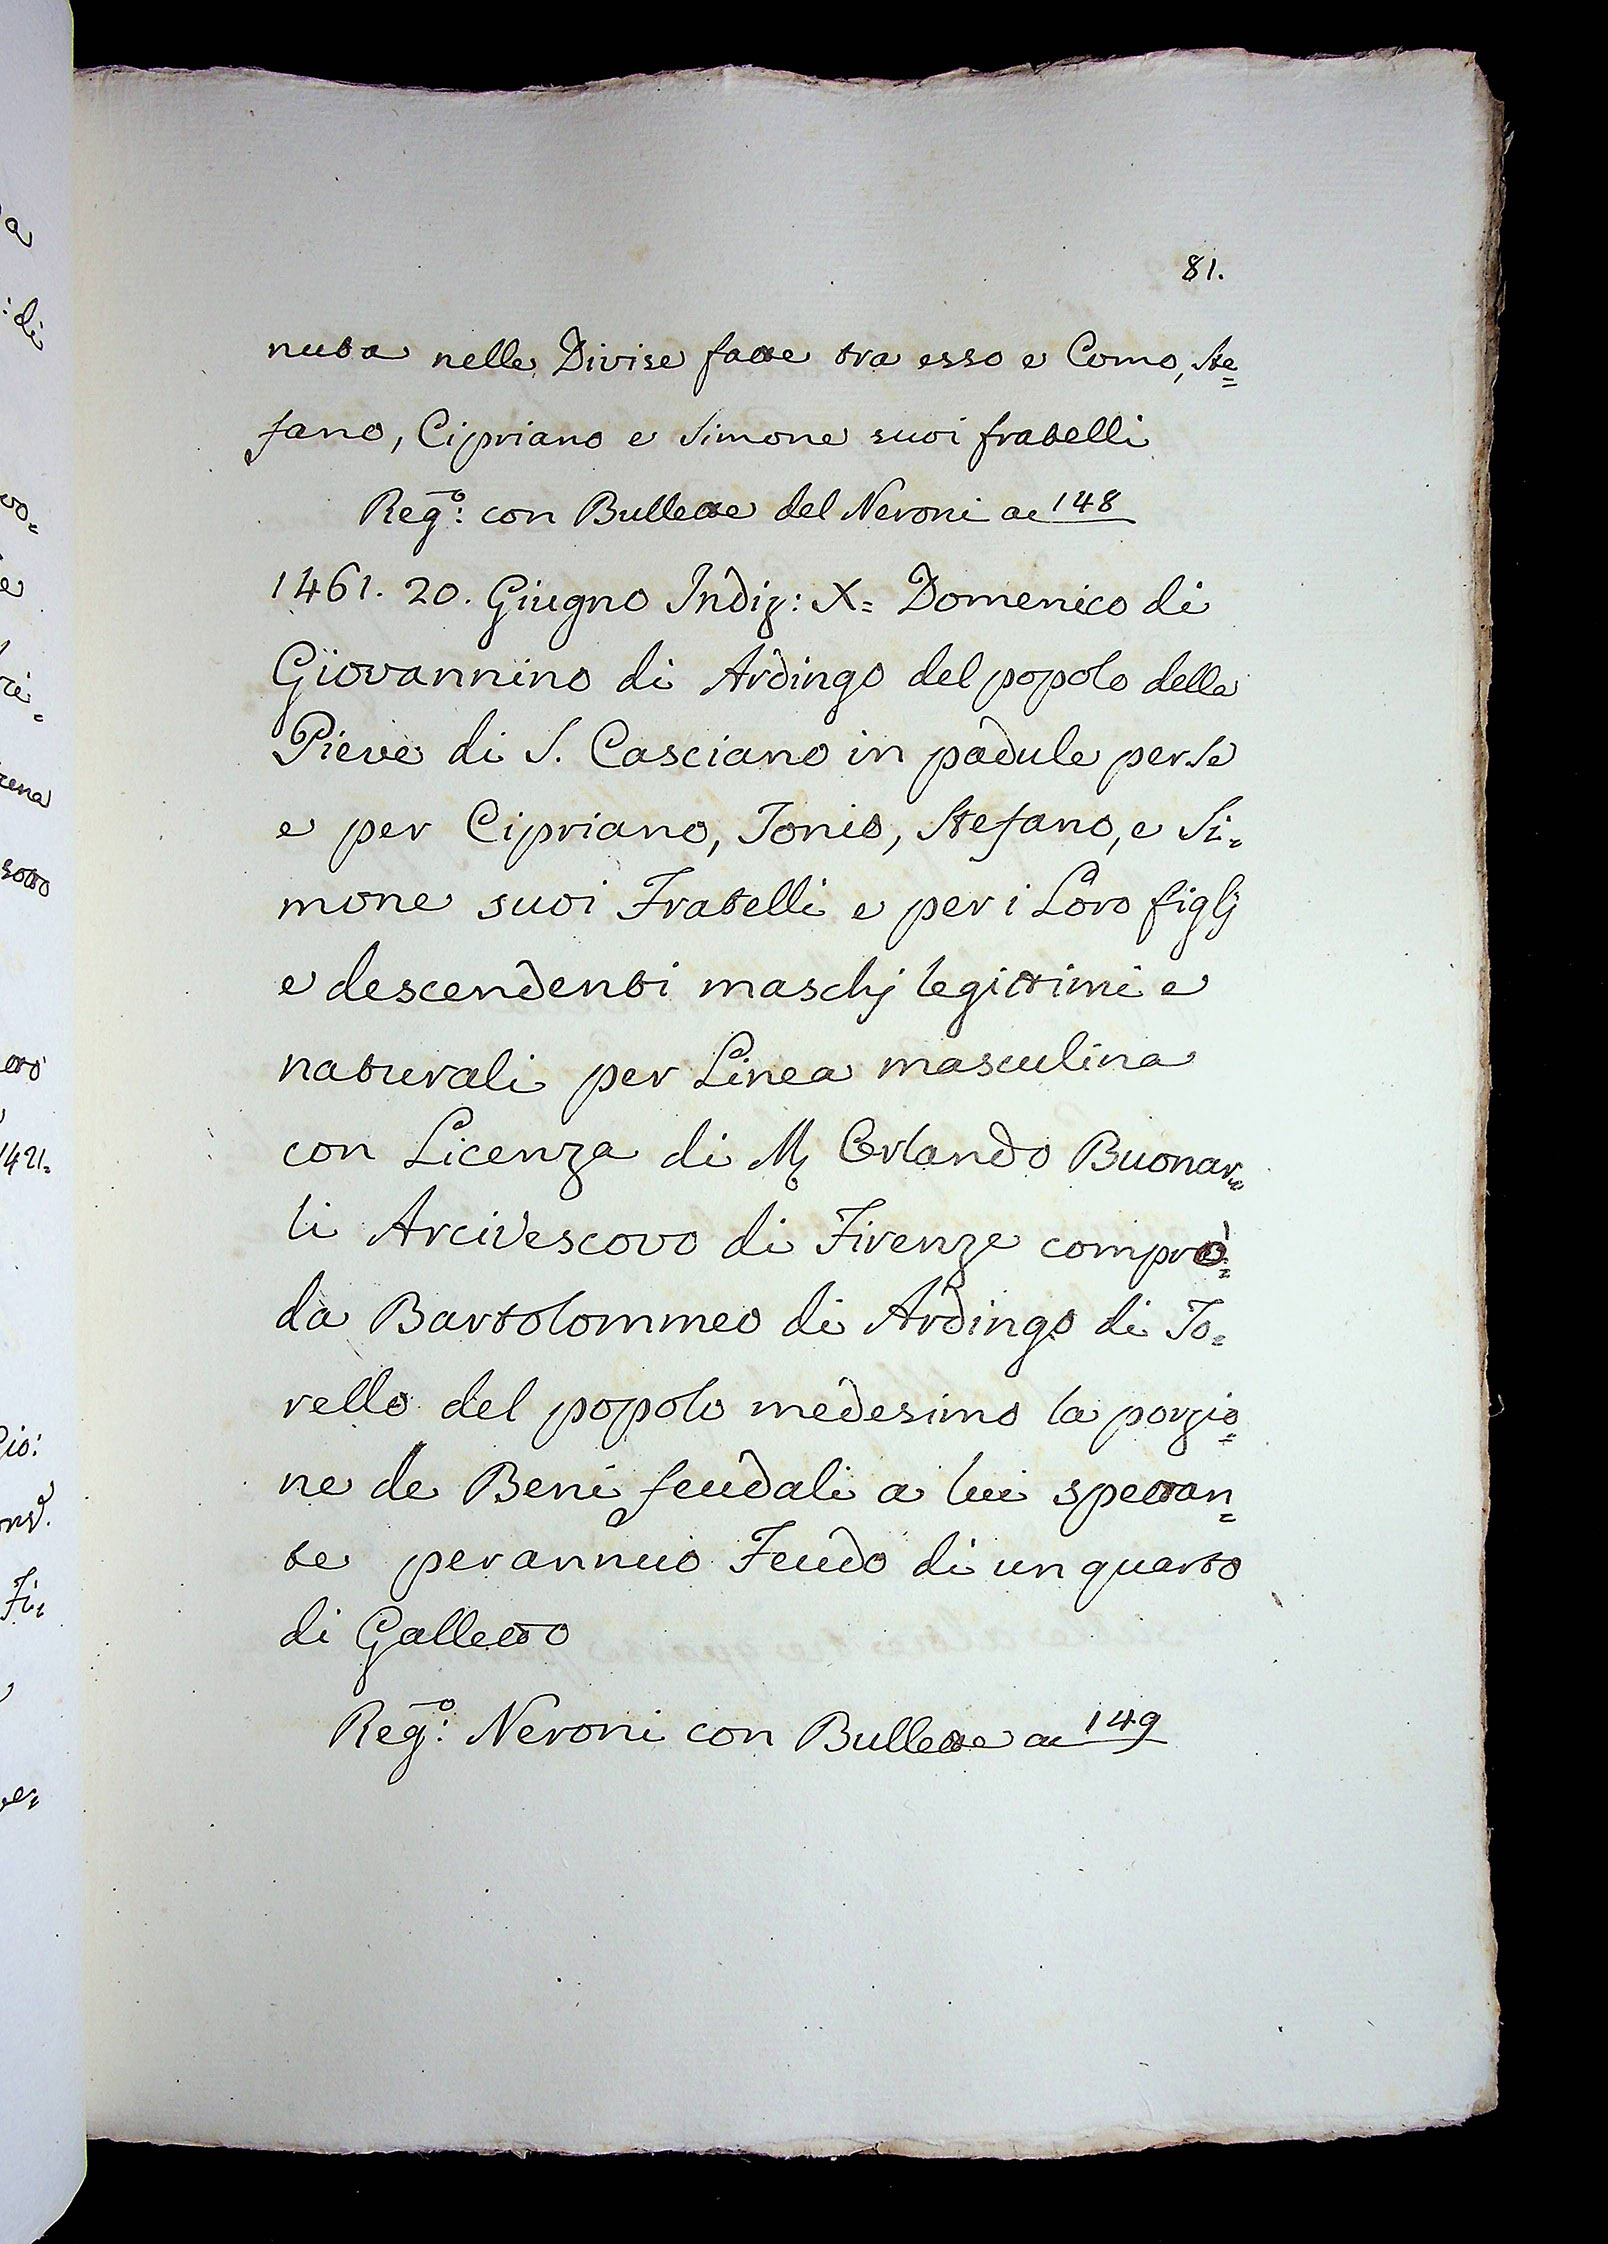 81.
nuta nelle Divise fatte tra esso e Como, Ste=
fano, Cipriano e Simone suoi fratelli
Reg:º con Bullette del Neroni a 148
1461. 20. Giugno Indiz: X= Domenico di
Giovannino di Ardingo del popolo della
Pieve di S. Casciano in padule per se
e per Cipriano, Tonio, Stefano, e Si=
mone suoi Fratelli e per i Loro figlj
e descendenti maschj legittimi e
naturali per Linea masculina
con Licenza di M. Orlando Buonar=
li Arcivescovo di Firenze comprò=
da Bartolommeo di Ardingo di To=
rello del popolo medesimo la porzio=
ne de Beni feudali a lui spettan=
te per annuo Feudo di un quarto
di Galletto
Reg:º Neroni con Bullette a 149